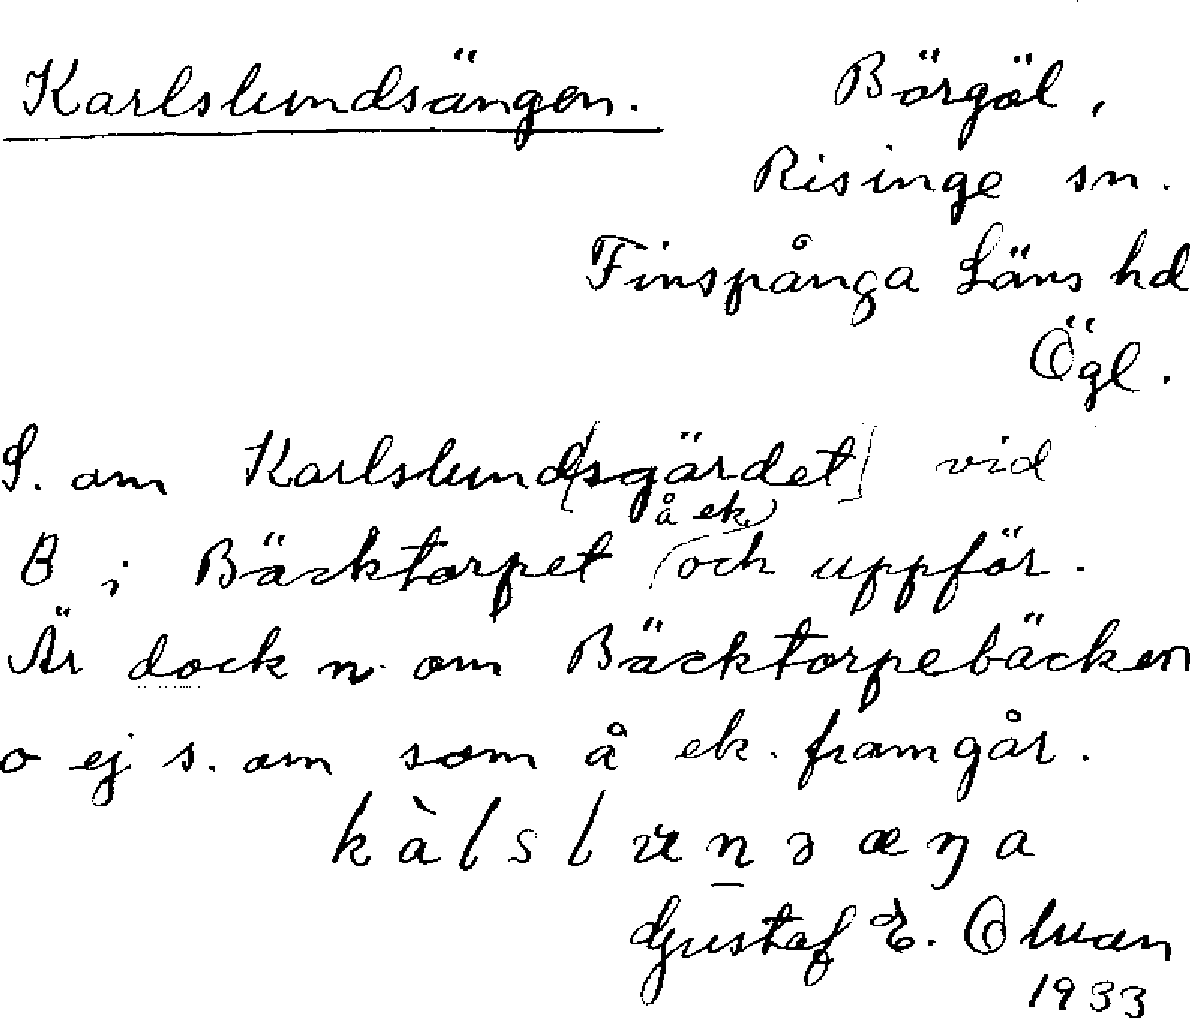 Karlslundsängen. Börgöl,
Risinge sn.
Finspånga Läns hd
Ögl.
S. om Karlslund[sgärdet] vid
B i Bäcktorpet (och uppför.
å ek.)
Är dock n. om Bäcktorpebäcken
o ej s. om som å ek. framgår.
Gustaf E. Olvan
1933